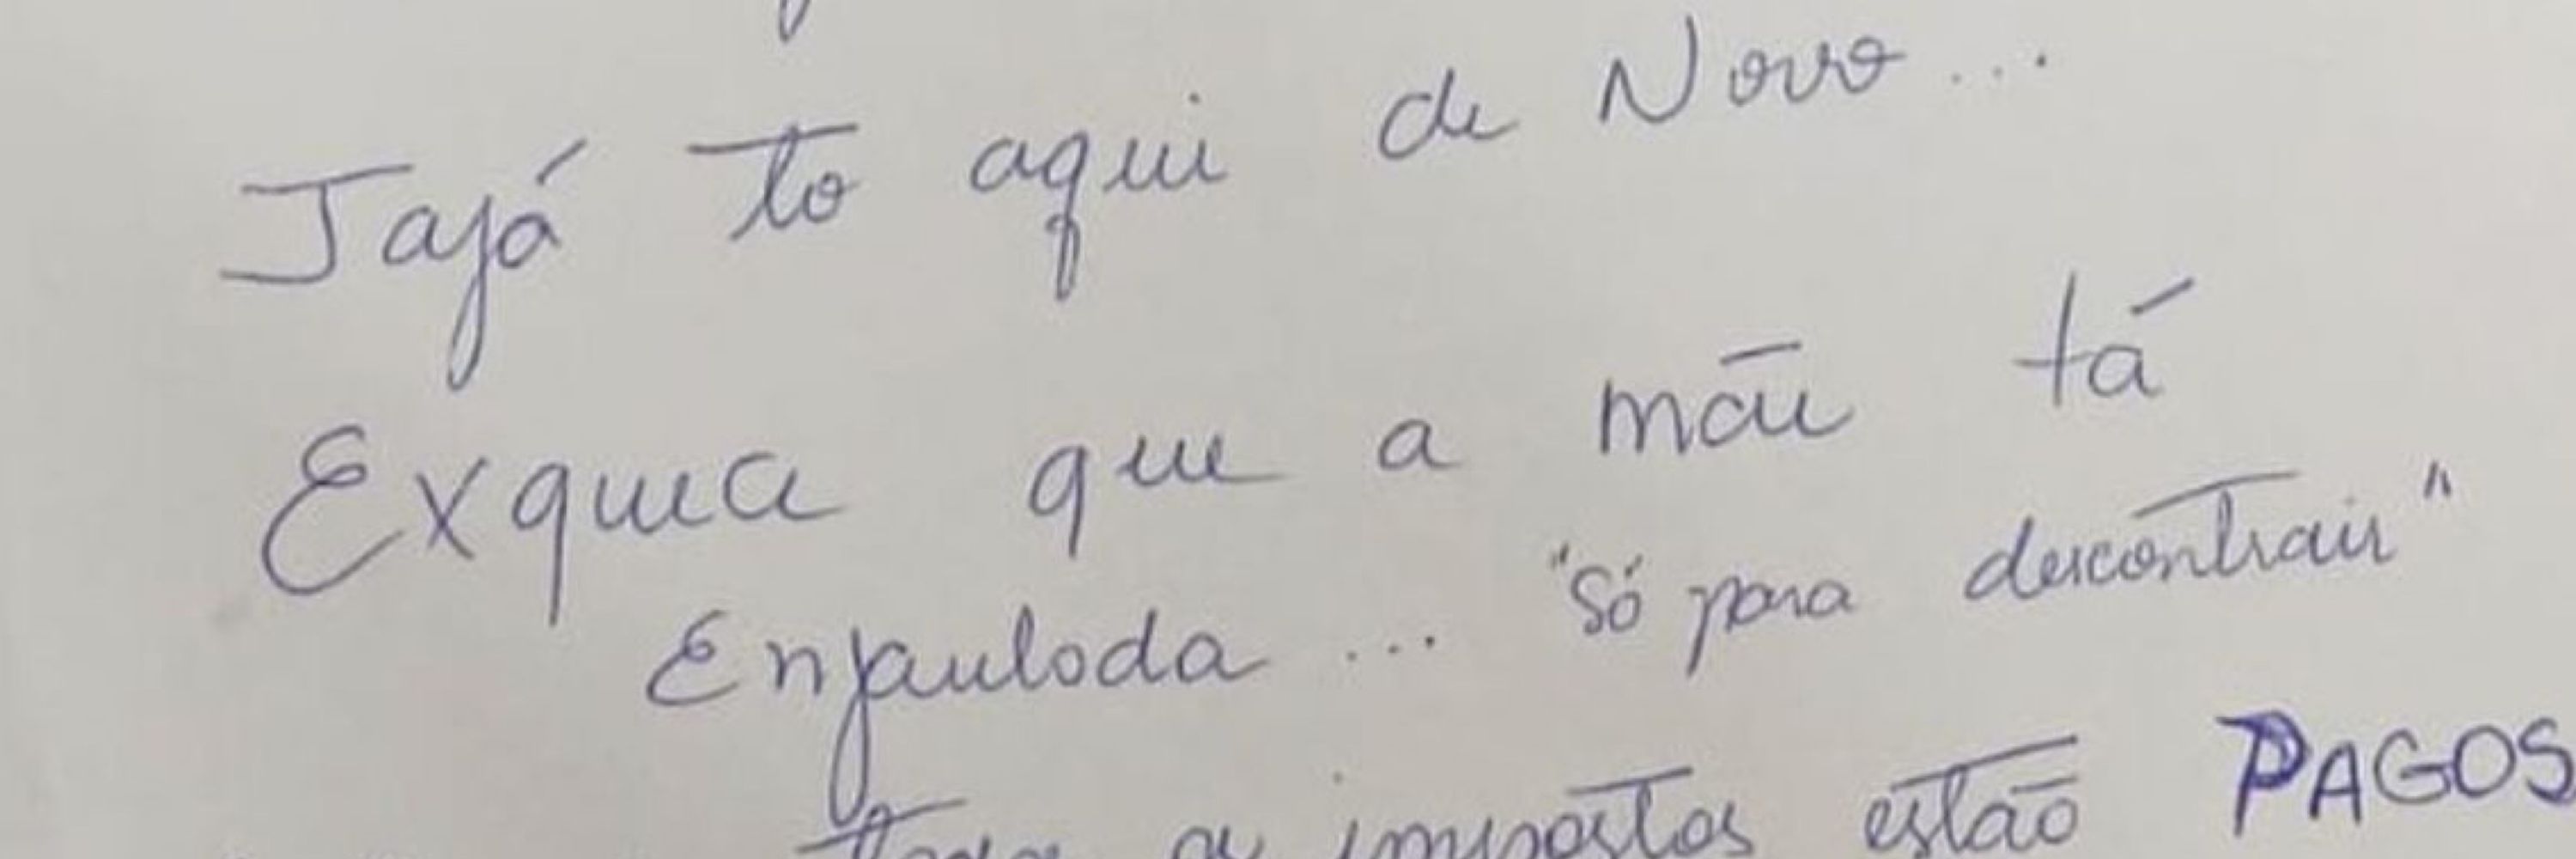 Jajá to aqui de Novo...
Exquea que a mãe tá
Enjaulada ... "Só para descontrair"
os impostos estão PAGOS